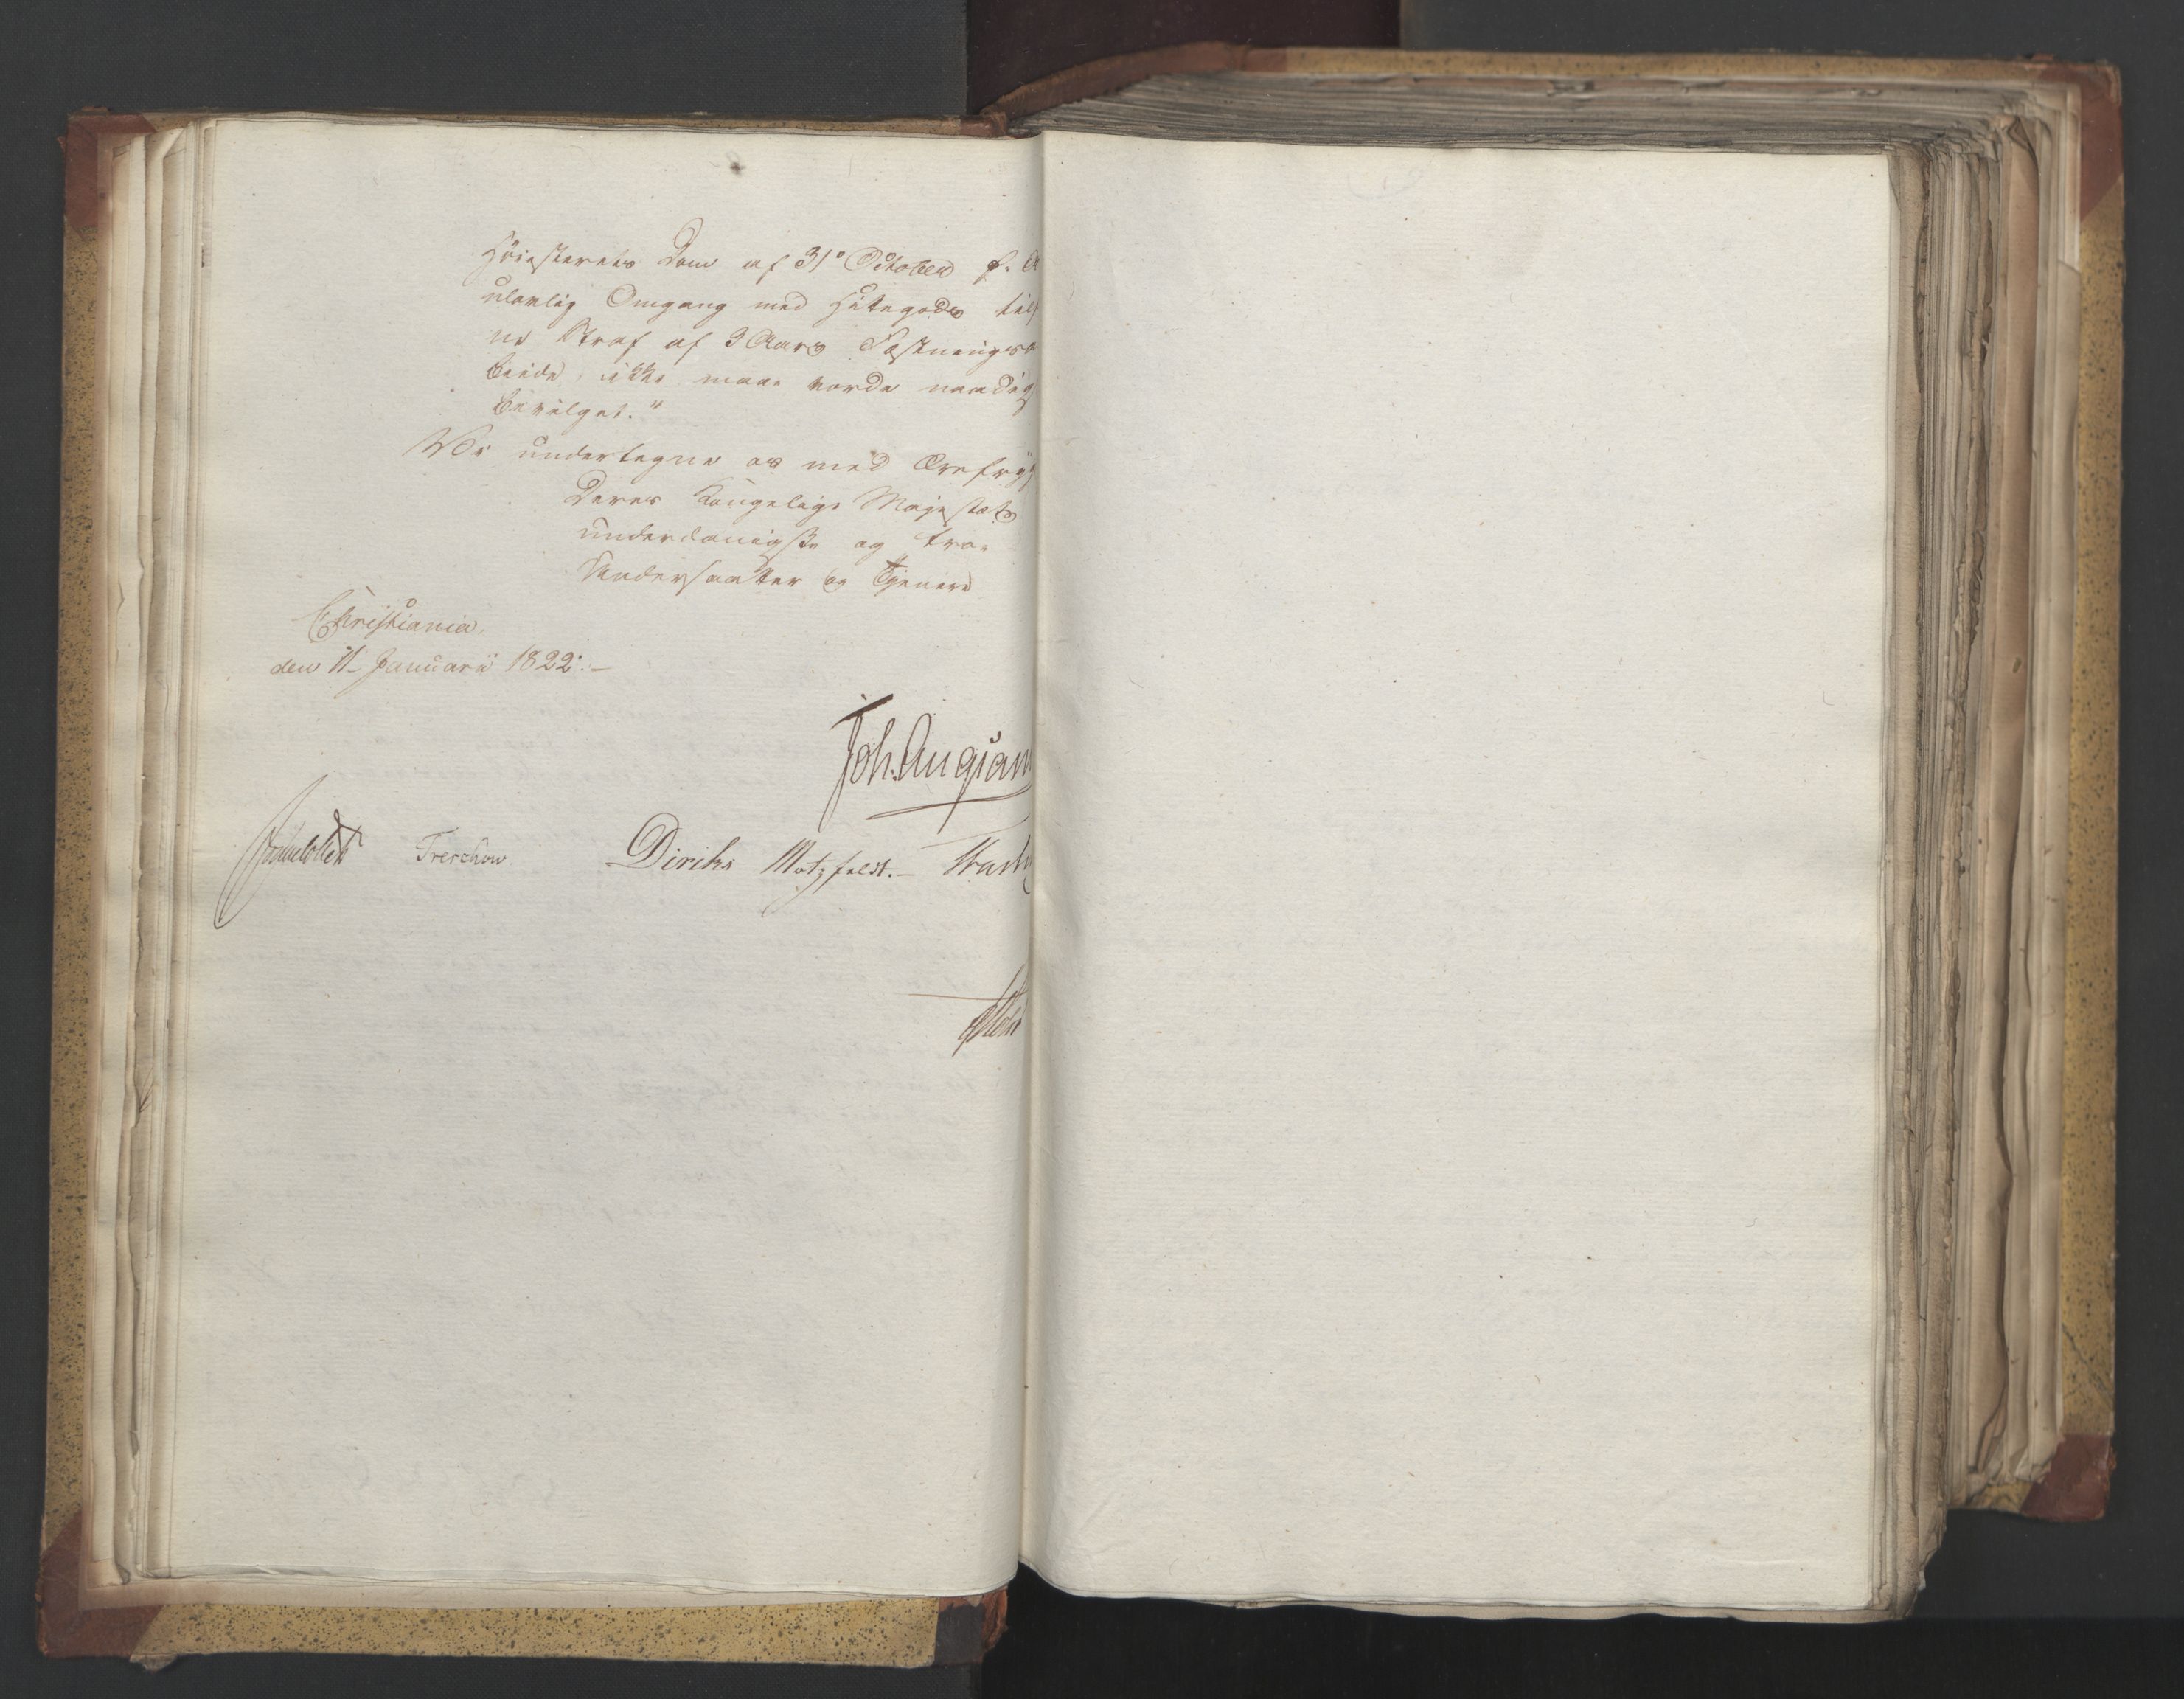 Höiesterets Dom af 31te October f. A
ulovlig Omgang med Hittegods til
ne Straf af 3 Aars Fæstnings
beide, ikke maae vorde naadigs
bevilget."
Vi undertegne os med Ærefryg
Deres Kongelige Majestæts
underdanigste og troe
Undersaatter og Tjenere
Christiania,
den 11 Januarii 1822.–
Joh. Aug. San
Sommerhielm Treschow. Diriks Motzfeldt.–